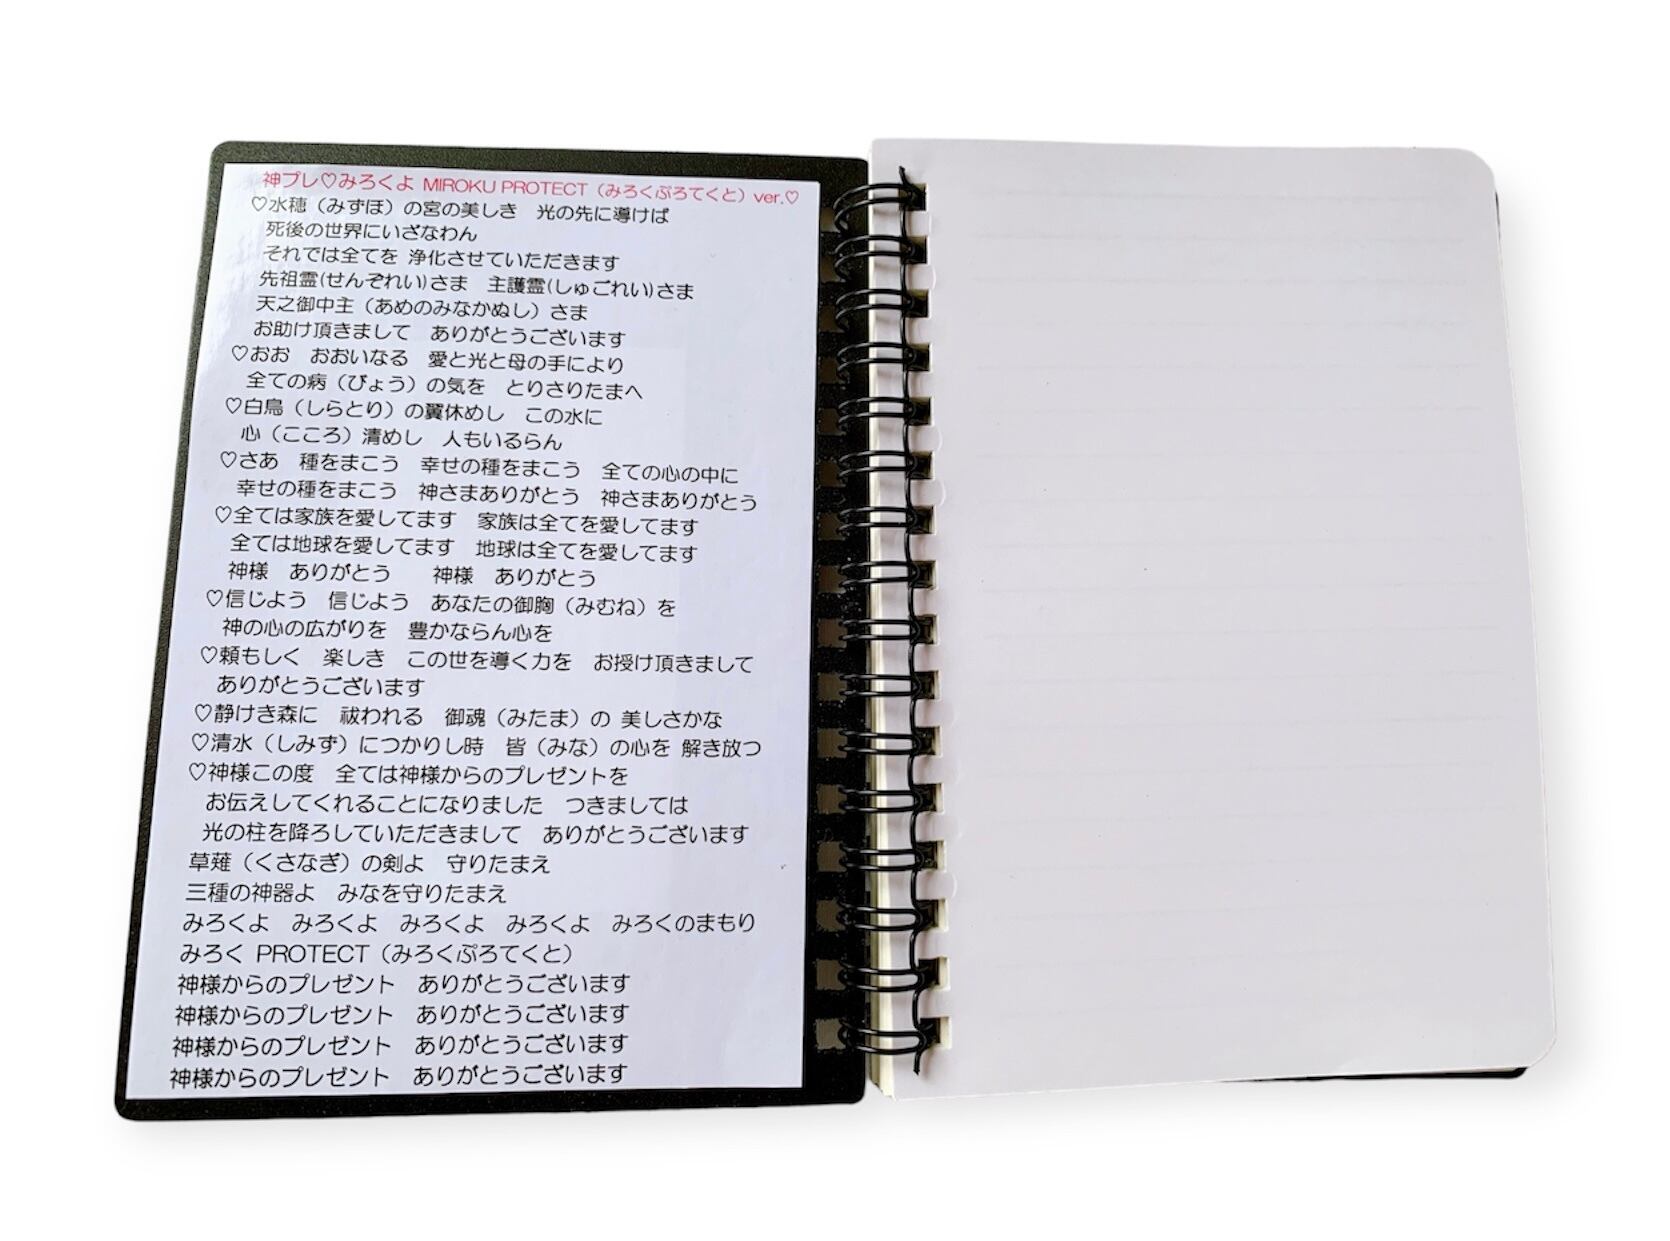 神プレ♡みろくよ MIROKU PROTECT（みろくぷろてくと）ver.♡
♡水穂（みずほ）の宮の美しき　光の先に導けば
死後の世界にいざなわん
それでは全てを 浄化させていただきます
先祖霊(せんぞれい)さま　主護霊(しゅごれい)さま
天之御中主（あめのみなかぬし）さま
お助け頂きまして　ありがとうございます
♡おお　おおいなる　愛と光と母の手により
全ての病（びょう）の気を　とりさりたまへ
♡白鳥（しらとり）の翼休めし　この水に
心（こころ）清めし　人もいるらん
♡さあ　種をまこう　幸せの種をまこう　全ての心の中に
幸せの種をまこう　神さまありがとう　神さまありがとう
♡全ては家族を愛してます　家族は全てを愛してます
全ては地球を愛してます　地球は全てを愛してます
神様　ありがとう　　神様　ありがとう
♡信じよう　信じよう　あなたの御胸（みむね）を
神の心の広がりを　豊かならん心を
♡頼もしく　楽しき　この世を導く力を　お授け頂きまして
ありがとうございます
♡静けき森に　祓われる　御魂（みたま）の 美しさかな
♡清水（しみず）につかりし時　皆（みな）の心を 解き放つ
♡神様この度　全ては神様からのプレゼントを
お伝えしてくれることになりました　つきましては
光の柱を降ろしていただきまして　ありがとうございます
草薙（くさなぎ）の剣よ　守りたまえ
三種の神器よ　みなを守りたまえ
みろくよ　みろくよ　みろくよ　みろくよ　みろくのまもり
みろく PROTECT（みろくぷろてくと）
神様からのプレゼント　ありがとうございます
神様からのプレゼント　ありがとうございます
神様からのプレゼント　ありがとうございます
神様からのプレゼント　ありがとうございます